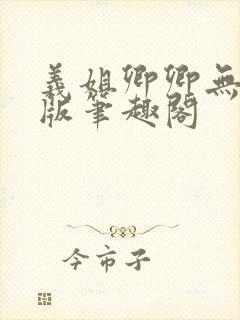 義姐卿卿無
版筆趣閣
今市子